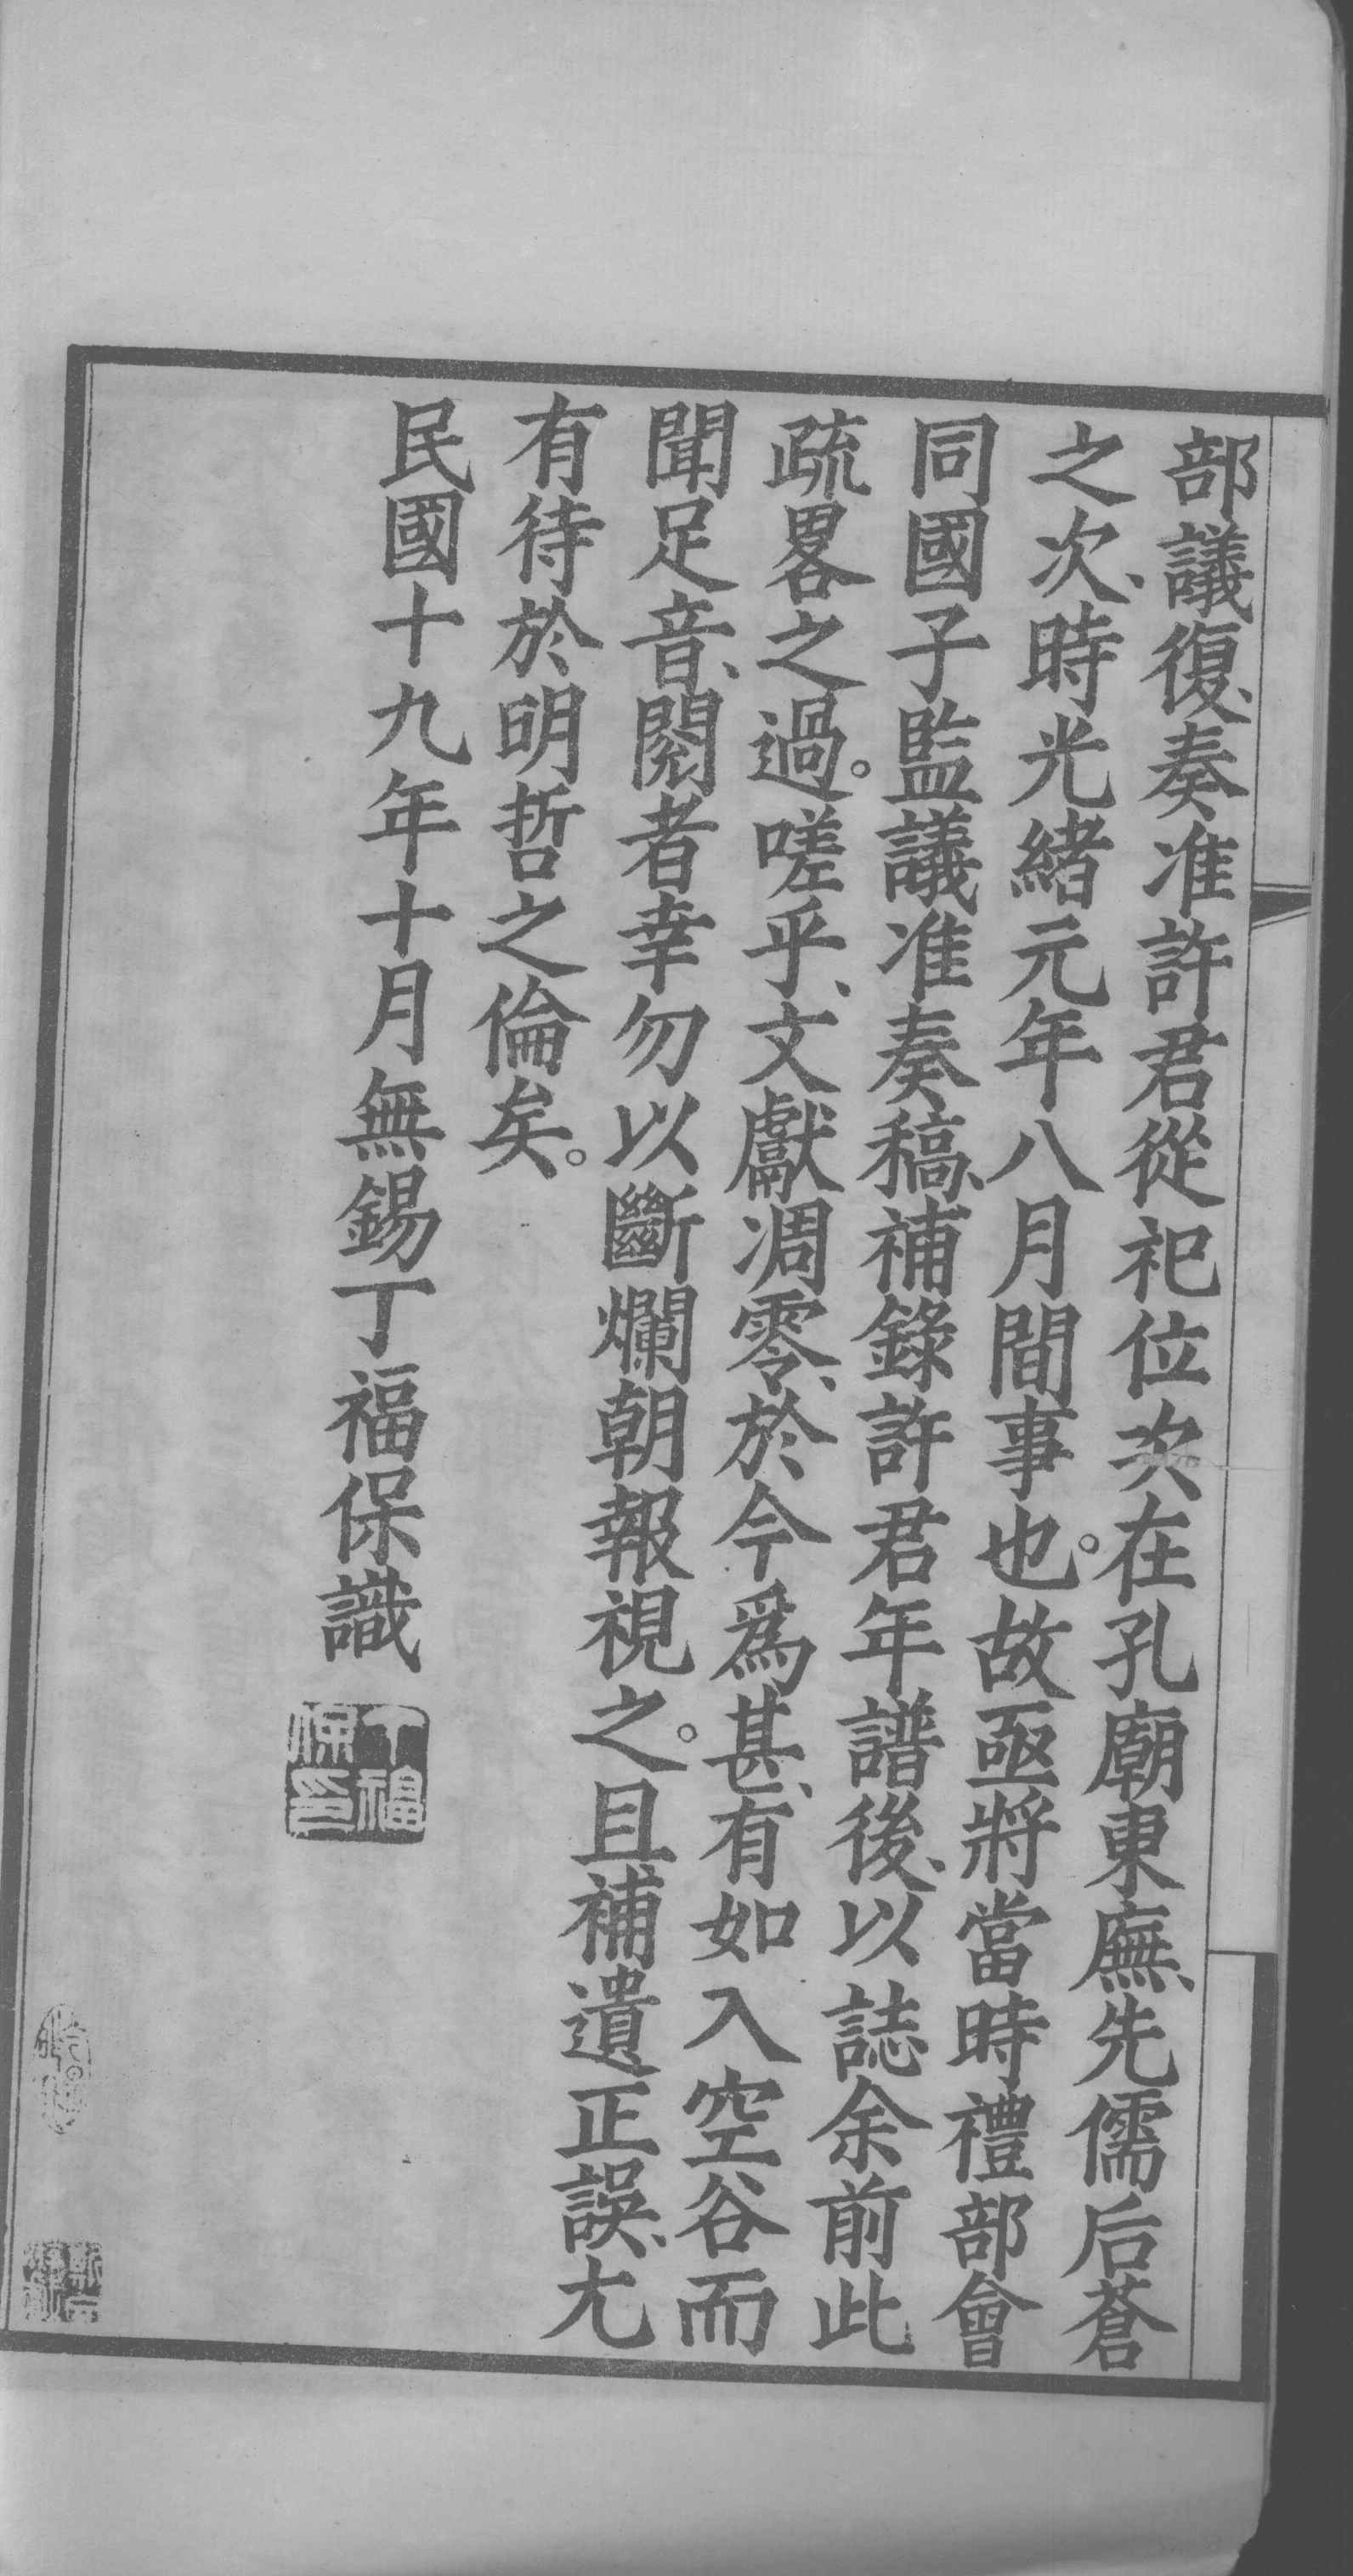 部議復、奏准許君從祀位次在孔廟東廡、先儒后蒼
之次、時光緒元年八月間事也。故亟將當時禮部會
同國子監議准奏稿、補錄許君年譜後、以誌余前此
疏畧之過。嗟乎、文獻凋零、於今爲甚、有如入空谷而
聞足音、閱者幸勿以斷爛朝報視之。且補遺正誤、尤
有待於明哲之倫矣。
民國十九年十月無錫丁福保識
丁福保印